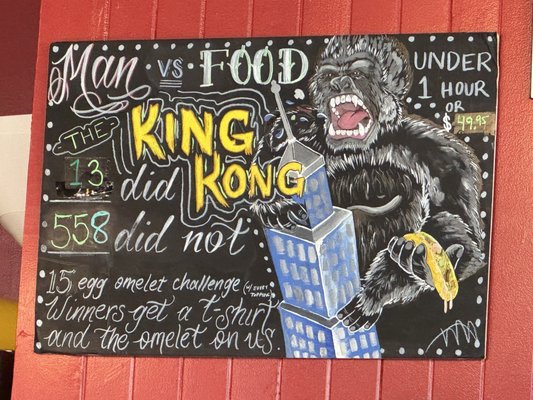 Man vs FOOD
UNDER
1 HOUR
OR
$49.95
THE
KING
KONG
13 did
558 did not
15 egg omelet challenge (w/ EVERY TOPPING)
Winners get a t-shirt
and the omelet on us.